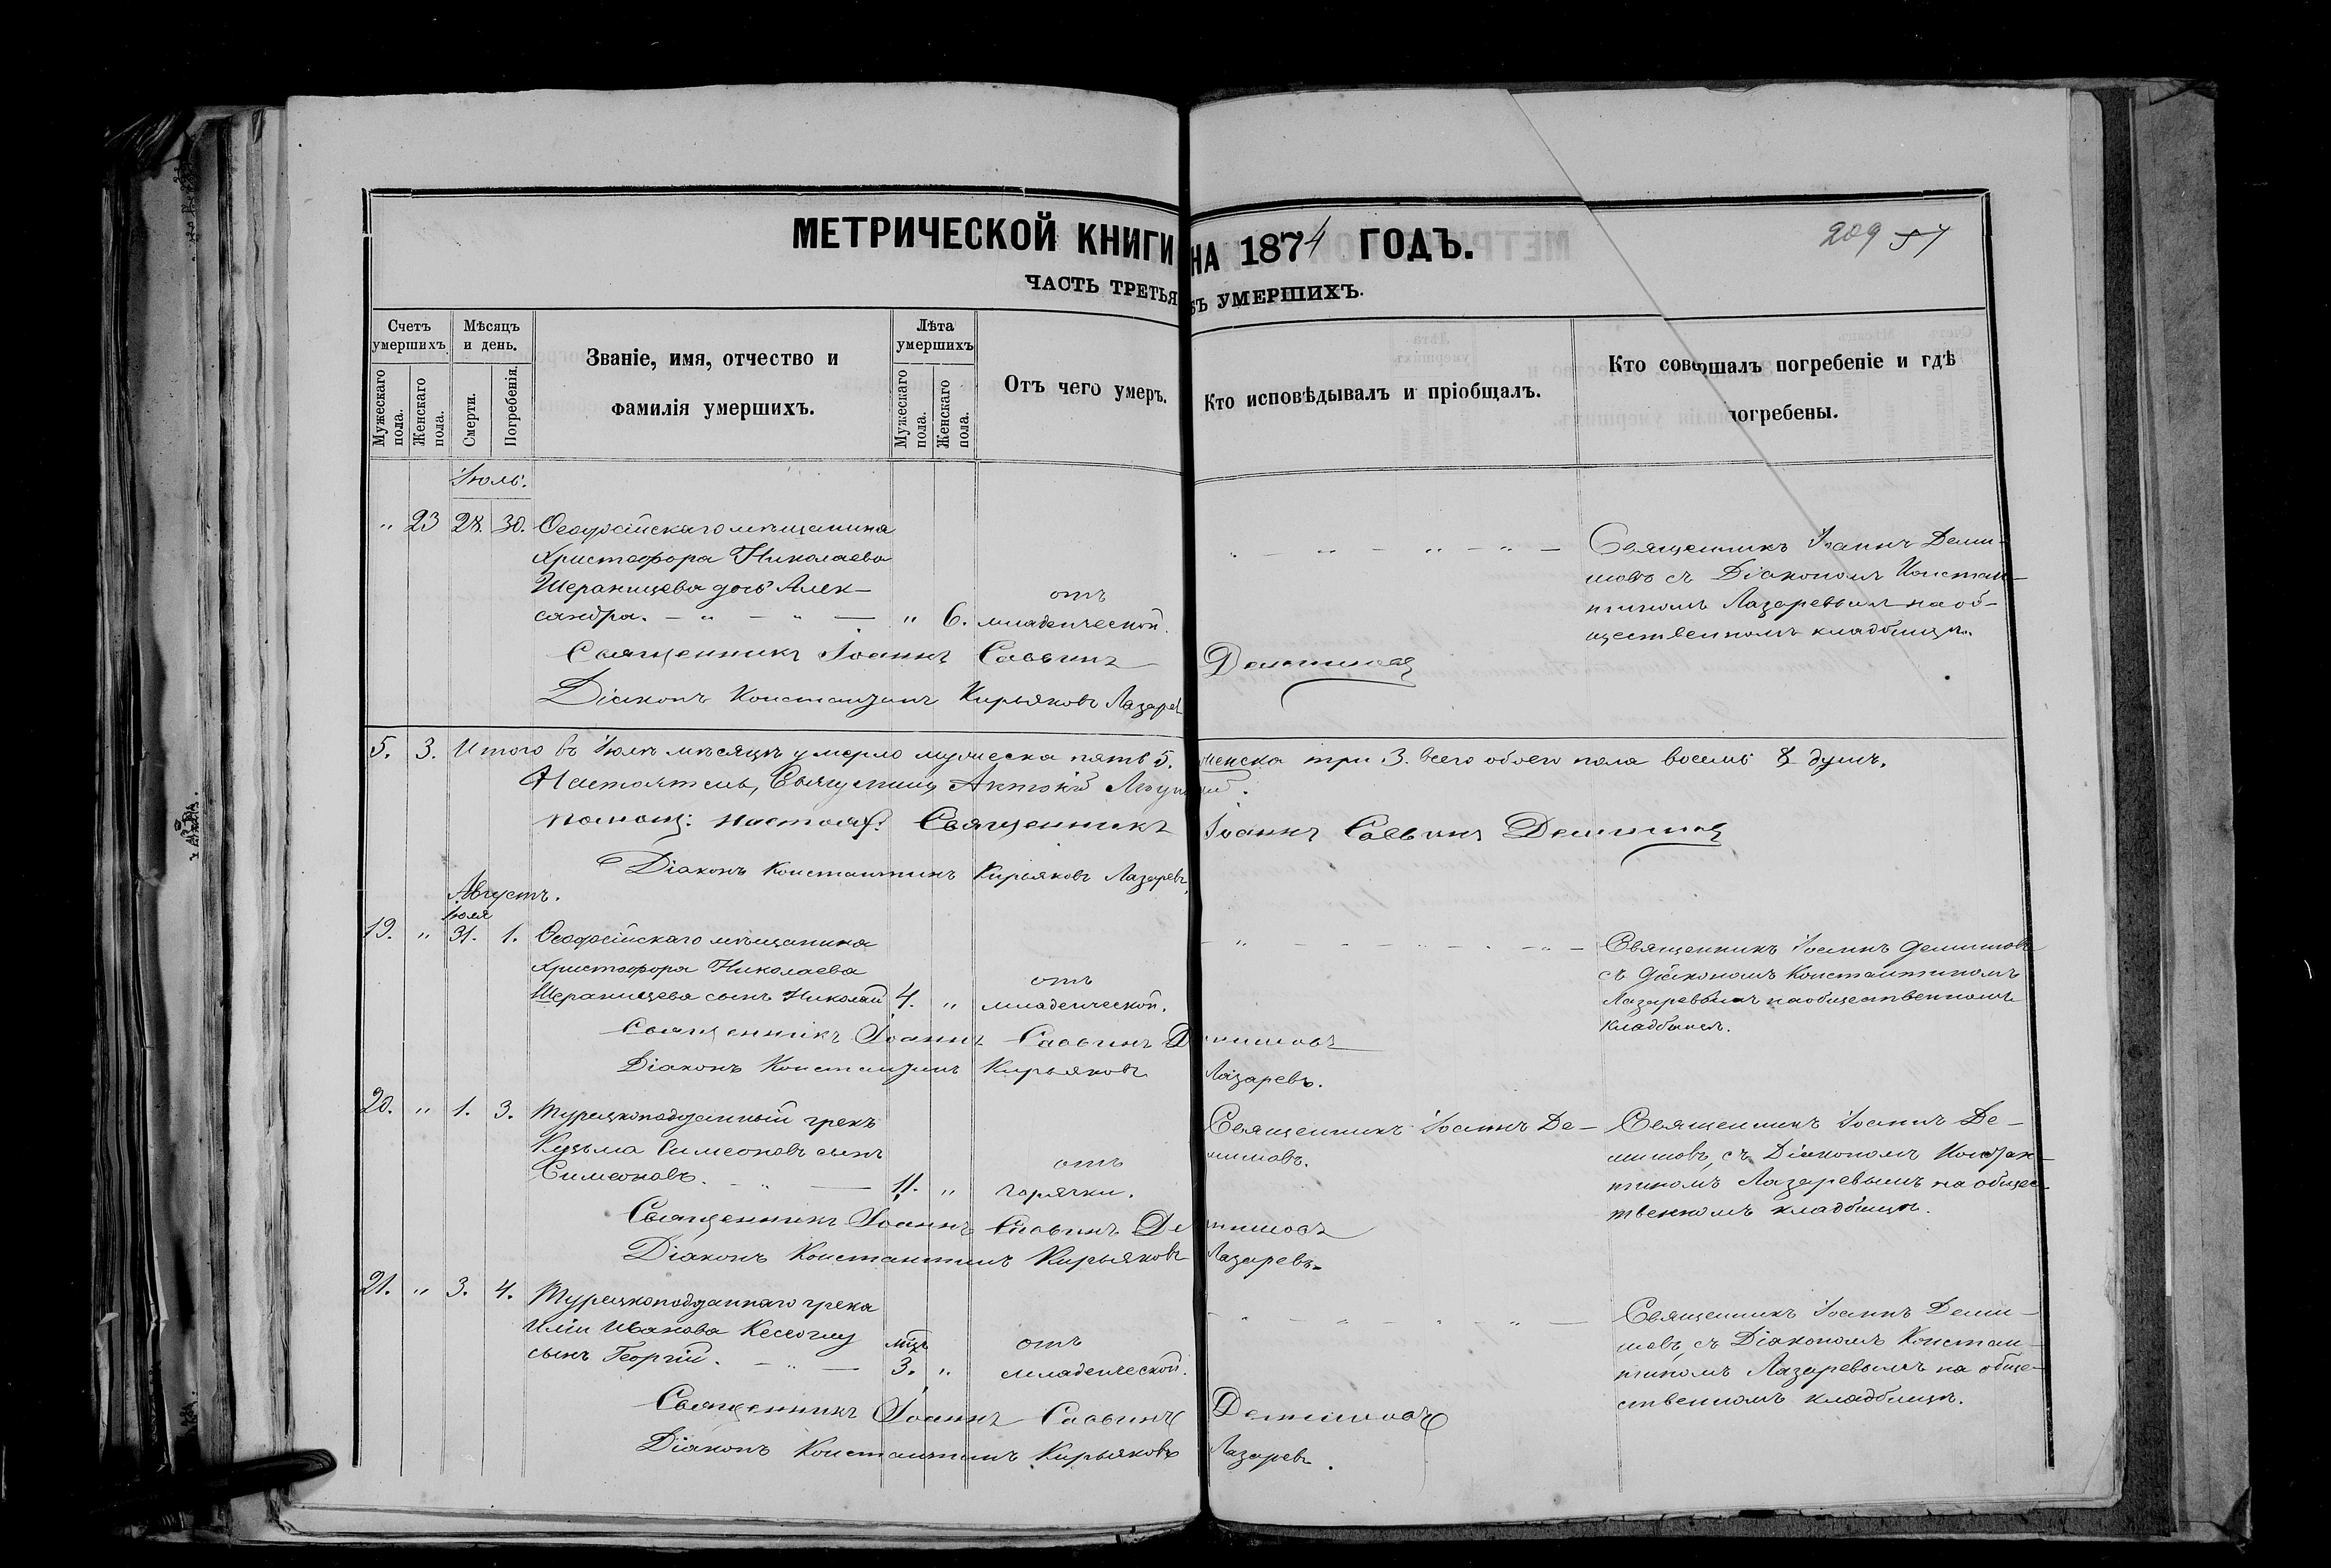 МЕТРИЧЕСКОЙ КНИГИ НА 1874 ГОДЪ.
209 57
ЧАСТЬ ТРЕТЬЯ УМЕРШИХЪ.
Счетъ умершихъ
Мужескаго пола.
Женскаго пола.
Мѣсяцъ и день.
Смерти.
Погребенія.
Званіе, имя, отчество и
фамилія умершихъ.
Лѣта умершихъ
Мужескаго пола.
Женскаго пола.
Отъ чего умеръ.
Кто исповѣдывалъ и пріобщалъ.
Кто совершалъ погребеніе и гдѣ
погребены.
Іюль.
" 23 28. 30. Ѳеодосійскаго мѣщанина
Христофора Николаева
Шеранищева дочь Алек-
сандра. " 6. отъ младенческой.
Священникъ Іоаннъ Деми-
шовъ съ Діакономъ Констан-
тиномъ Лазаревымъ на об-
щественномъ кладбищѣ.
Священникъ Іоаннъ Саввинъ Демишовъ
Діаконъ Константинъ Кирьяковъ Лазарев
5. 3. Итого въ Іюлѣ мѣсяцѣ умерло мужеска пять 5. женска три 3. всего обоего пола восемь 8 душъ.
Настоятель, Священникъ
помощ: настоят: Священникъ Іоаннъ Саввинъ Демишовъ
Діаконъ Константинъ Кирьяковъ Лазаревъ
Августъ.
Іюля
19. " 31. 1. Ѳеодосійскаго мѣщанина
Христофора Николаева
Шеранищева сынъ Николай 4. " отъ младенческой.
Священникъ Іоаннъ Демишовъ
съ Діакономъ Константиномъ
Лазаревымъ на общественномъ
кладбищѣ.
Священникъ Іоаннъ Саввинъ Демишовъ
Діаконъ Константинъ Кирьяковъ Лазаревъ.
20. " 1. 3. Турецкоподданный грекъ
Кузьма Симеоновъ сынъ
Симеоновъ. 11. " отъ горячки.
Священникъ Іоаннъ Де-
мишовъ.
Священникъ Іоаннъ Де-
мишовъ, съ Діакономъ Констан-
тиномъ Лазаревымъ на общес-
твенномъ кладбищѣ.
Священникъ Іоаннъ Саввинъ Демишовъ
Діаконъ Константинъ Кирьяковъ Лазаревъ.
21. " 3. 4. Турецкоподданнаго грека
Иліи Иванова Кесеоглу
сынъ Георгій. мѣц. 3. " отъ младенческой.
Священникъ Іоаннъ Деми-
шовъ, съ Діакономъ Констан-
тиномъ Лазаревымъ на обще-
ственномъ кладбищѣ.
Священникъ Іоаннъ Саввинъ Демишовъ
Діаконъ Константинъ Кирьяковъ Лазаревъ.